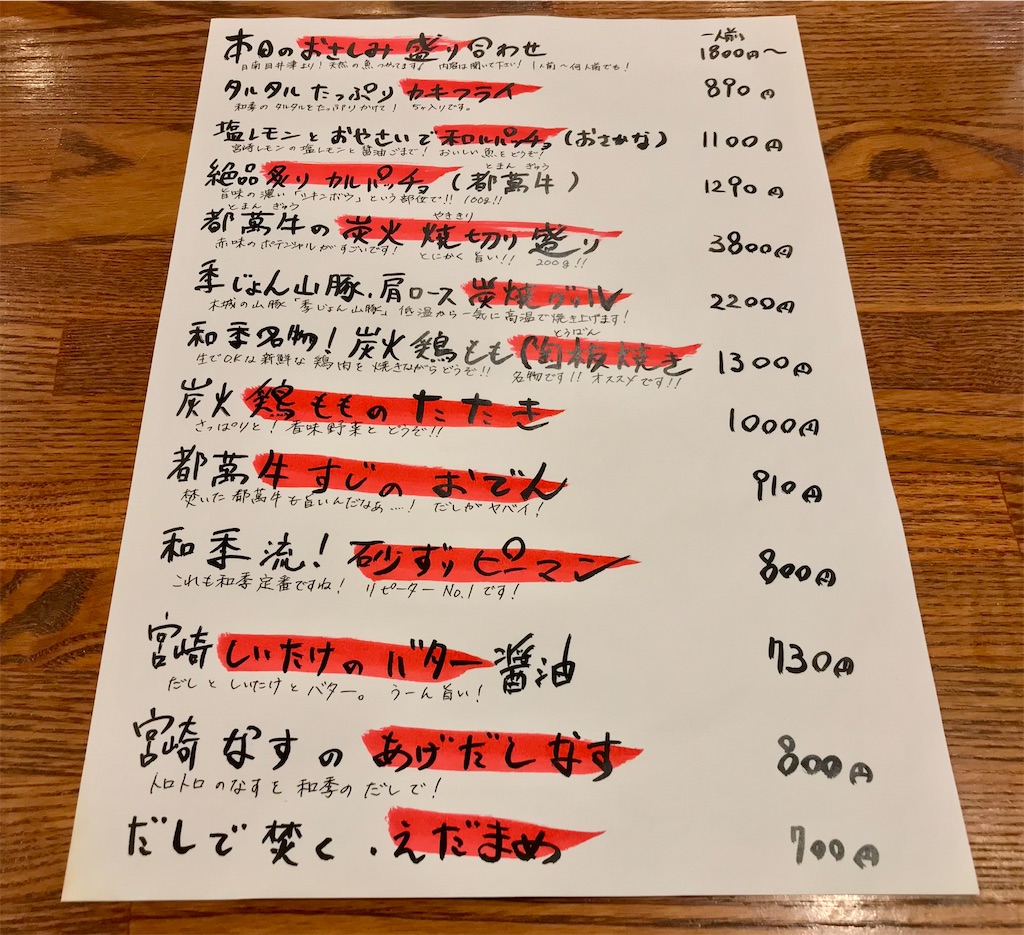 本日のおさしみ盛り合わせ 一人前 1800円〜
日南目井津より！天然の魚つめてます！ 内容は聞いて下さい！ 1人前〜何人前でも！
タルタルたっぷりカキフライ 890円
和季のタルタルをたっぷりかけて！ 5ヶ入りです。
塩レモンとおやさいで和ルパッチョ(おさかな) 1100円
宮崎レモンの塩レモンと醤油ごまで！ おいしい魚をどうぞ！
とまん ぎゅう
絶品炙りカルパッチョ(都萬牛) 1290円
旨味の濃い「ツキンボウ」という部位で!! 100g!!
とまん ぎゅう やききり
都萬牛の炭火焼切り盛り 3800円
赤味のポテンシャルがすごいです！ とにかく旨い!! 200g!!
季じょん山豚.肩ロース炭焼グリル 2200円
木城の山豚「季じょん山豚」低温から一気に高温で焼き上げます！
とうばん
和季名物！炭火鶏もも陶板焼き 1300円
生でOKな新鮮な鶏肉を焼きながらどうぞ!! 名物です!! オススメです!!
炭火鶏もものたたき 1000円
さっぱりと！香味野菜とどうぞ!!
都萬牛すじのおでん 910円
焚いた都萬牛も旨いんだなあ....！ だしがヤバイ！
和季流！砂ずりピーマン 800円
これも和季定番ですね！ リピーターNo.1です！
宮崎しいたけのバター醤油 730円
だしとしいたけとバター。うーん旨い！
宮崎なすのあげだしなす 800円
トロトロのなすを和季のだしで！
だしで焚く.えだまめ 700円